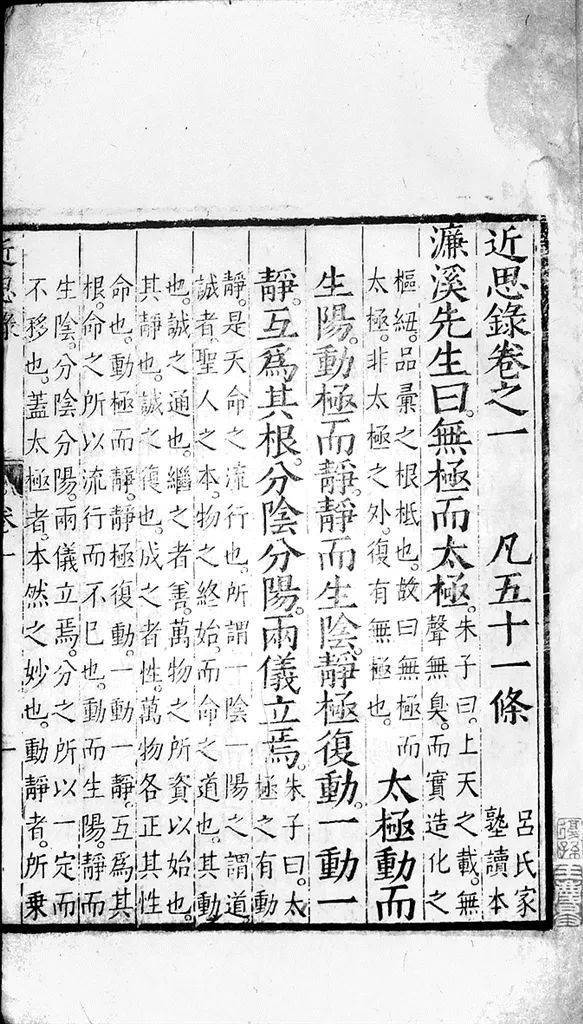 近思錄卷之一　凡五十一條　呂氏家
塾讀本
濂溪先生曰。無極而太極。朱子曰。上天之載。無
聲無臭。而實造化之
樞紐。品彙之根柢也。故曰無極而
太極。非太極之外。復有無極也。太極動而
生陽。動極而靜。靜而生陰。靜極復動。一動一
靜。互爲其根。分陰分陽。兩儀立焉。朱子曰。太
極之有動
靜。是天命之流行也。所謂一陰一陽之謂道。
誠者聖人之本。物之終始。而命之道也。其動
也。誠之通也。繼之者善。萬物之所資以始也。
其靜也。誠之復也。成之者性。萬物各正其性
命也。動極而靜。靜極復動。一動一靜。互爲其
根。命之所以流行而不已也。動而生陽。靜而
生陰。分陰分陽。兩儀立焉。分之所以一定而
不移也。蓋太極者。本然之妙也。動靜者。所乘
近思錄
卷一
一